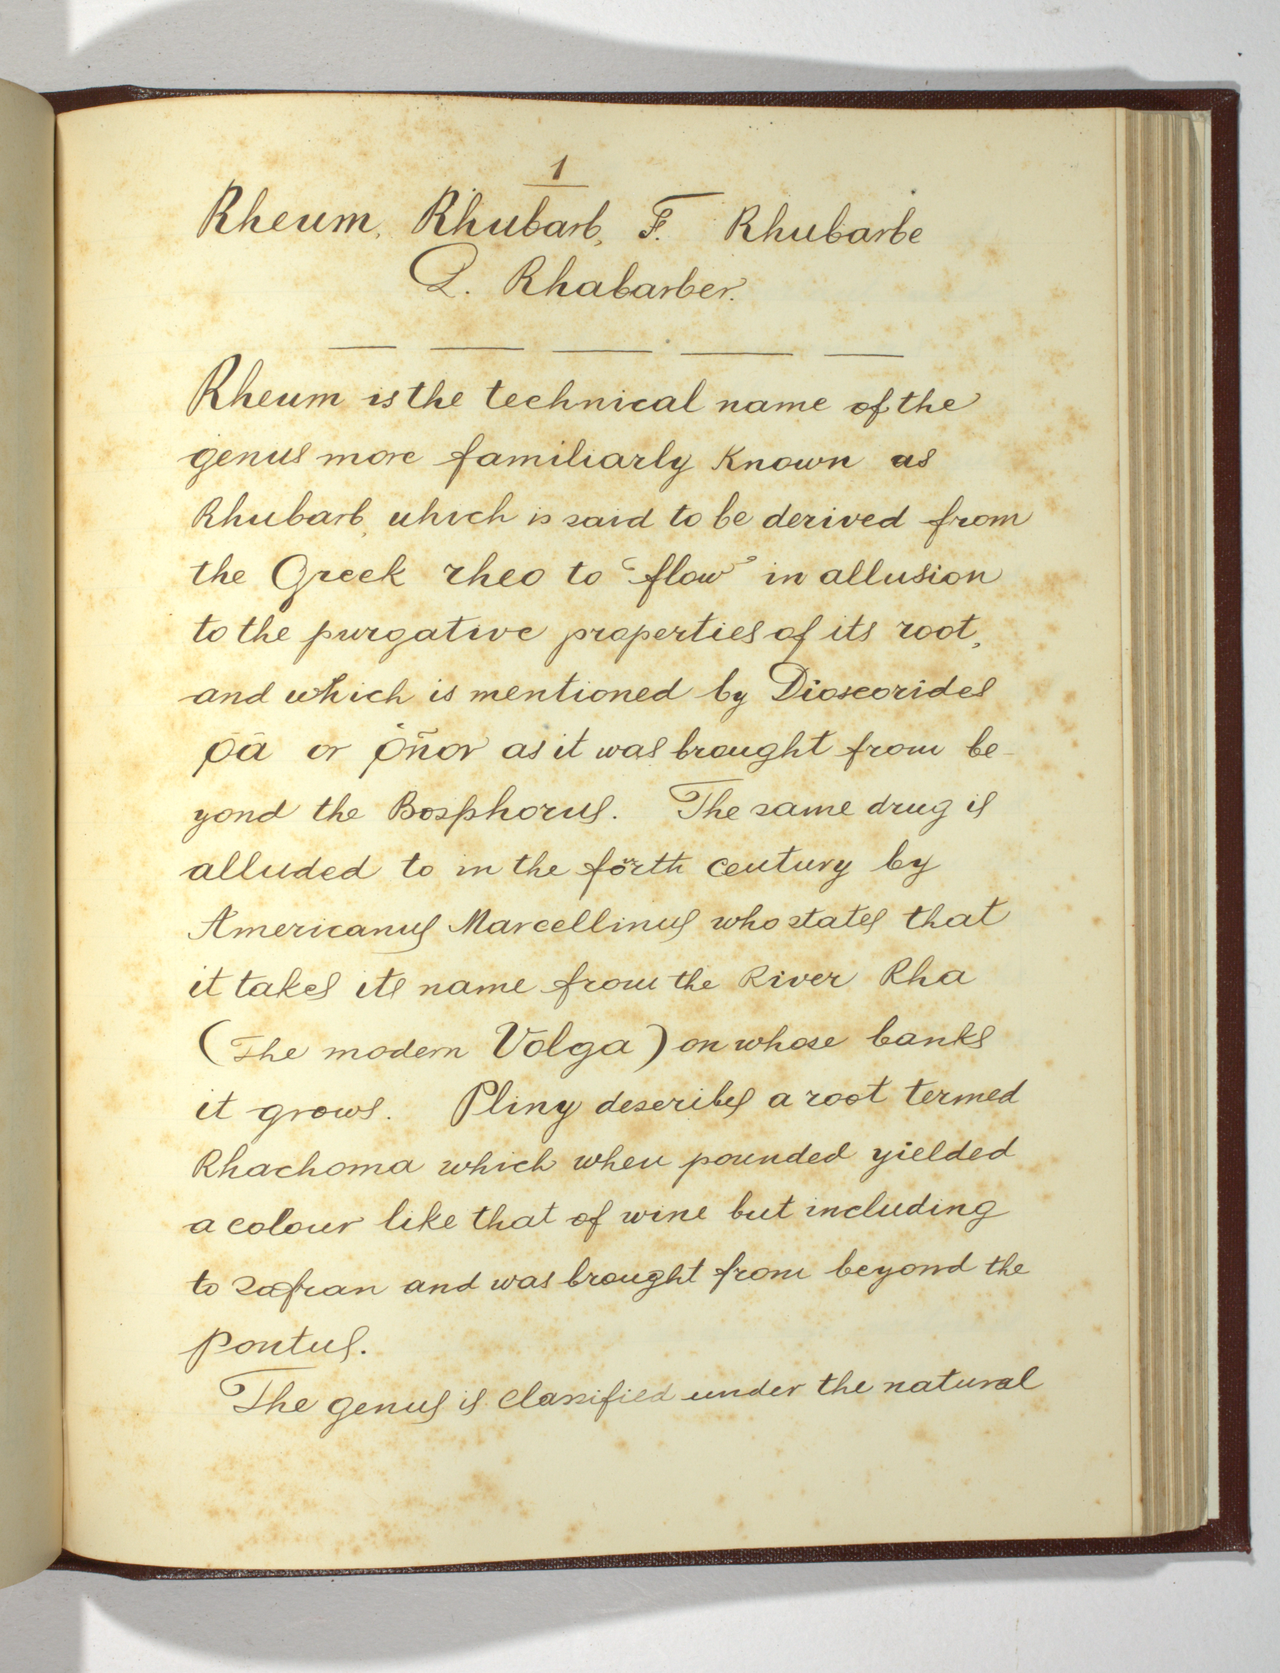 1
Rheum, Rhubarb, F. Rhubarbe
D. Rhabarber.
Rheum is the technical name of the
genus more familiarly Known as
Rhubarb, which is said to be derived from
the Greek rheo to "flow" in allusion
to the purgative properties of its root,
and which is mentioned by Dioscorides
ρα or as it was brought from be-
yond the Bosphorus. The same drug is
alluded to in the forth century by
Americanus Marcellinus who states that
it takes its name from the River Rha
(The modern Volga) on whose banks
it grows. Pliny describes a root termed
Rhachoma which when pounded yielded
a colour like that of wine but including
to Safran and was brought from beyond the
Pontus.
The genus is classified under the natural